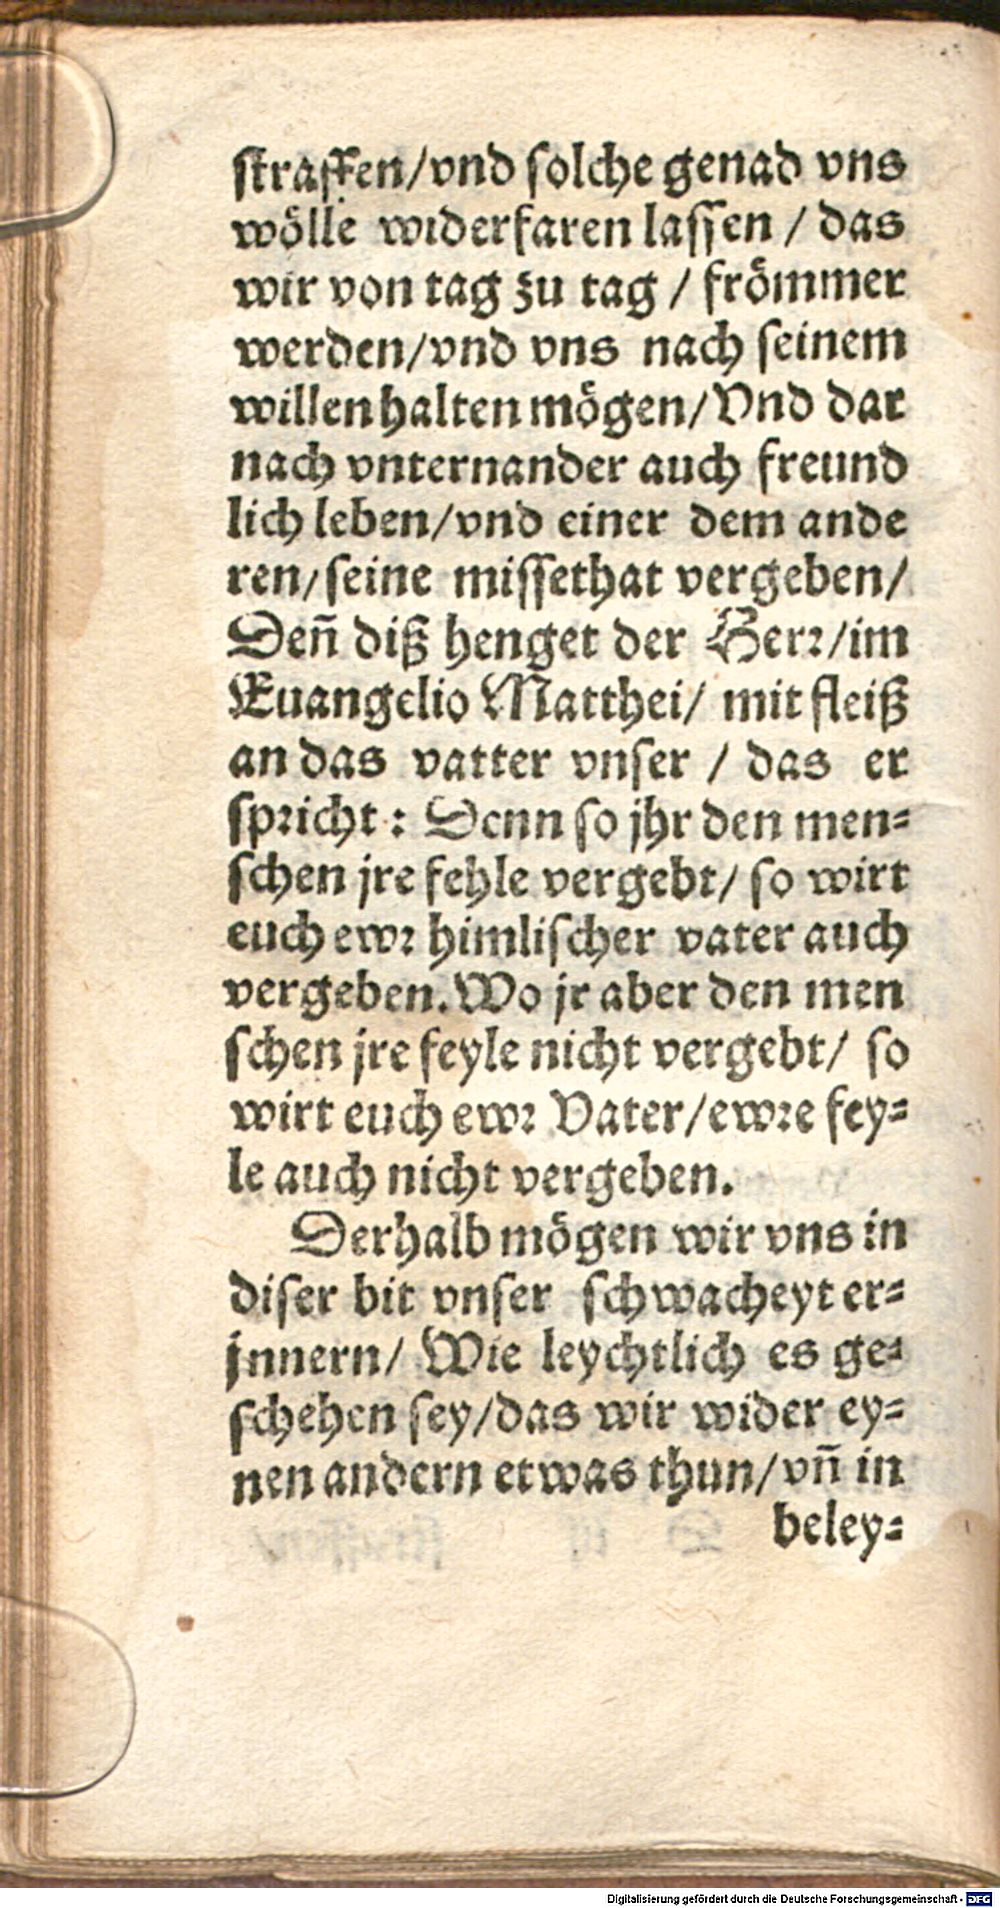 ſtraffen/vnd ſolche genad vns
wölle widerfaren laſſen / das
wir von tag zu tag / frömmer
werden/vnd vns nach ſeinem
willen halten mögen/Vnd dar
nach vnternander auch freund
lich leben/vnd einer dem ande
ren/ſeine miſſethat vergeben/
Deñ diß henget der Herꝛ/im
Euangelio Matthei/ mit fleiß
an das vatter vnſer / das er
ſpꝛicht: Denn ſo jhr den men⸗
ſchen jre fehle vergebt/ ſo wirt
euch ewꝛ himliſcher vater auch
vergeben. Wo jr aber den men
ſchen jre feyle nicht vergebt/ ſo
wirt euch ewꝛ Vater/ewꝛe fey⸗
le auch nicht vergeben.
Derhalb mögen wir vns in
diſer bit vnſer ſchwacheyt er⸗
jnnern/ Wie leychtlich es ge⸗
ſchehen ſey/das wir wider ey⸗
nen andern etwas thun/vñ in
beley⸗
Digitalisierung gefördert durch die Deutsche Forschungsgemeinschaft - DFG